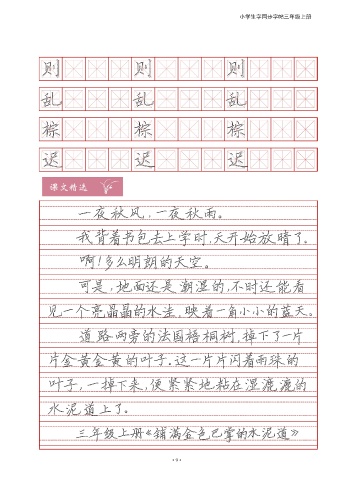 小学生字同步字帖三年级上册
则 则 则
乱 乱 乱
棕 棕 棕
迟 迟 迟
课文精选
一夜秋风,一夜秋雨。
我背着书包去上学时,天开始放晴了。
啊!多么明朗的天空。
可是,地面还是潮湿的,不时还能看
见一个亮晶晶的水洼,映着一角小小的蓝天。
道路两旁的法国梧桐树,掉下了一片
片金黄金黄的叶子。这一片片闪着雨珠的
叶子,一掉下来,便紧紧地粘在湿漉漉的
水泥道上了。
三年级上册《铺满金色巴掌的水泥道》